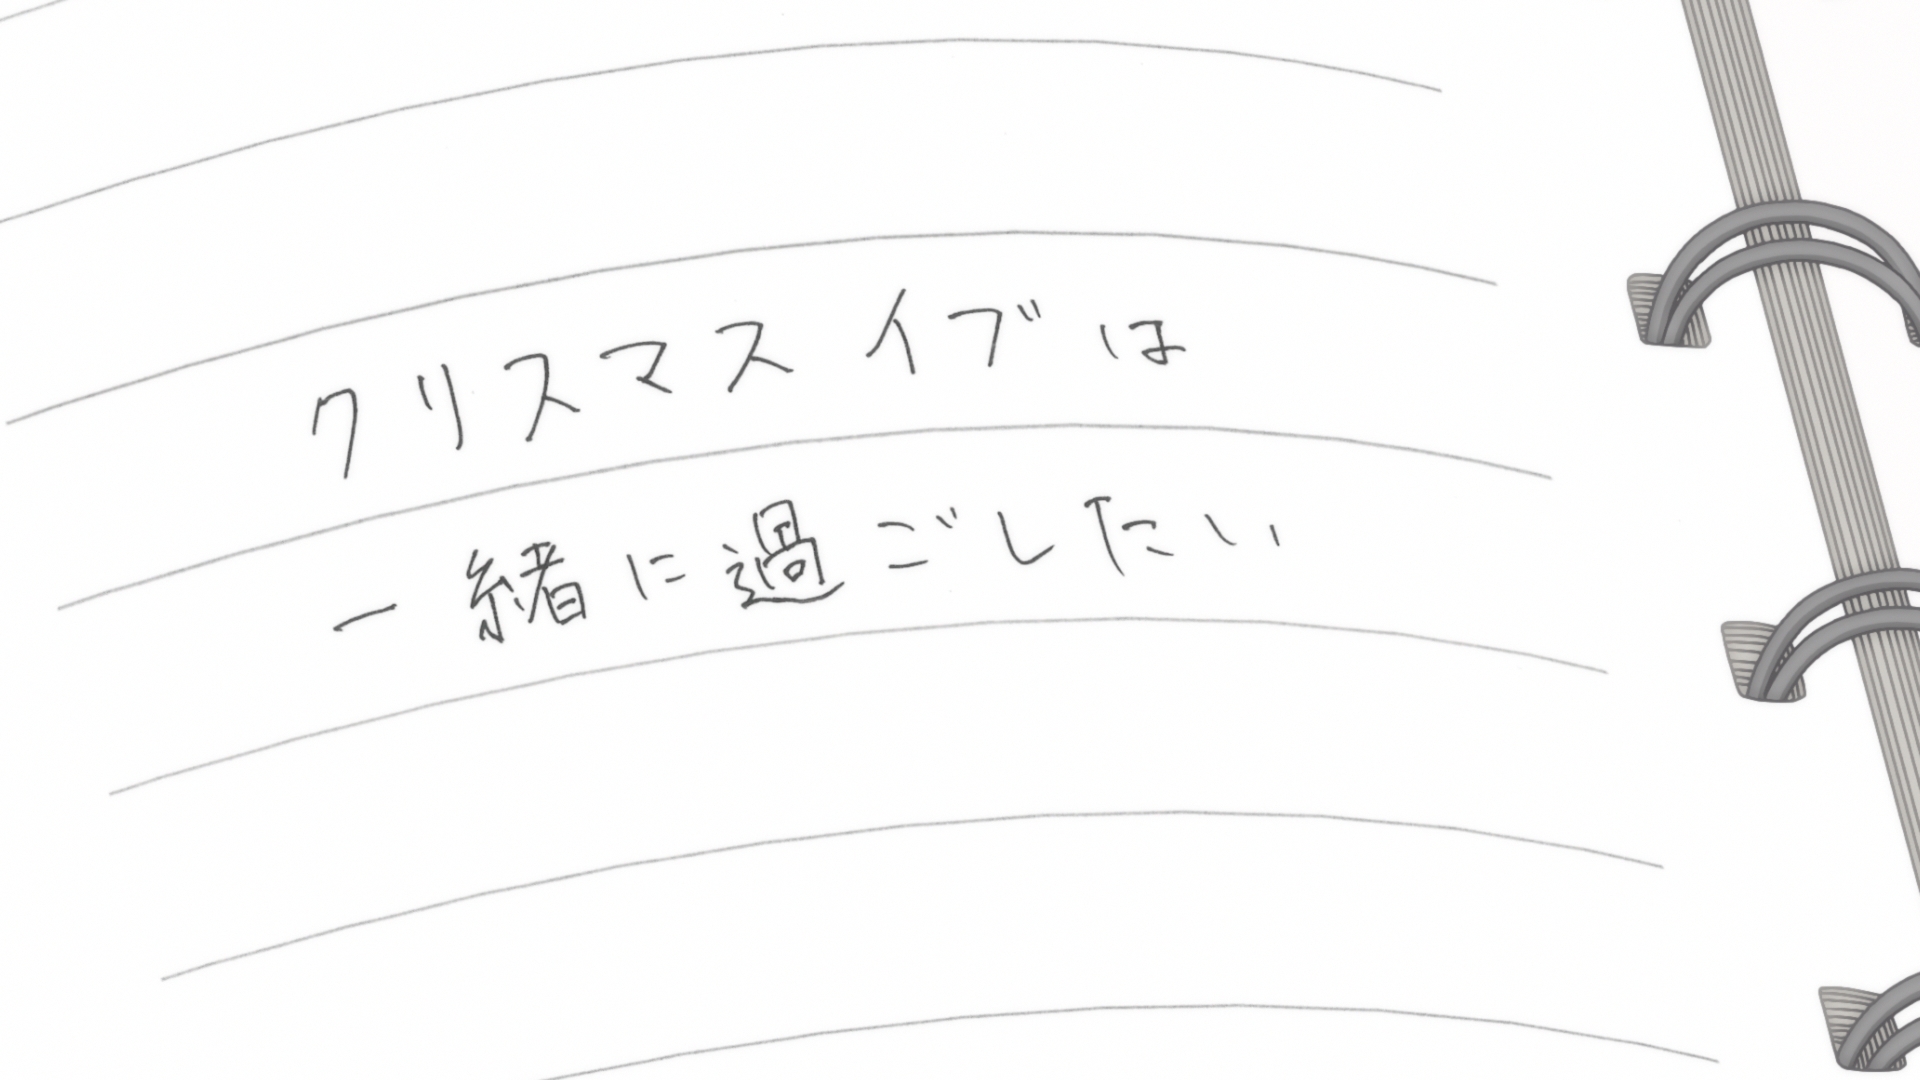 クリスマスイブは
一緒に過ごしたい